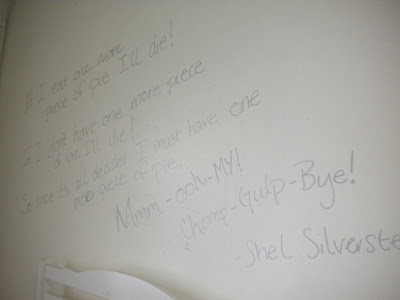 If I eat one more
piece of pie I'll die!
If I don't have one more piece
of pie I'll die!
So since it's all decided I must have one
more piece of pie.
Mmm-ooh-MY!
Chomp-Gulp-Bye!
-Shel Silverste